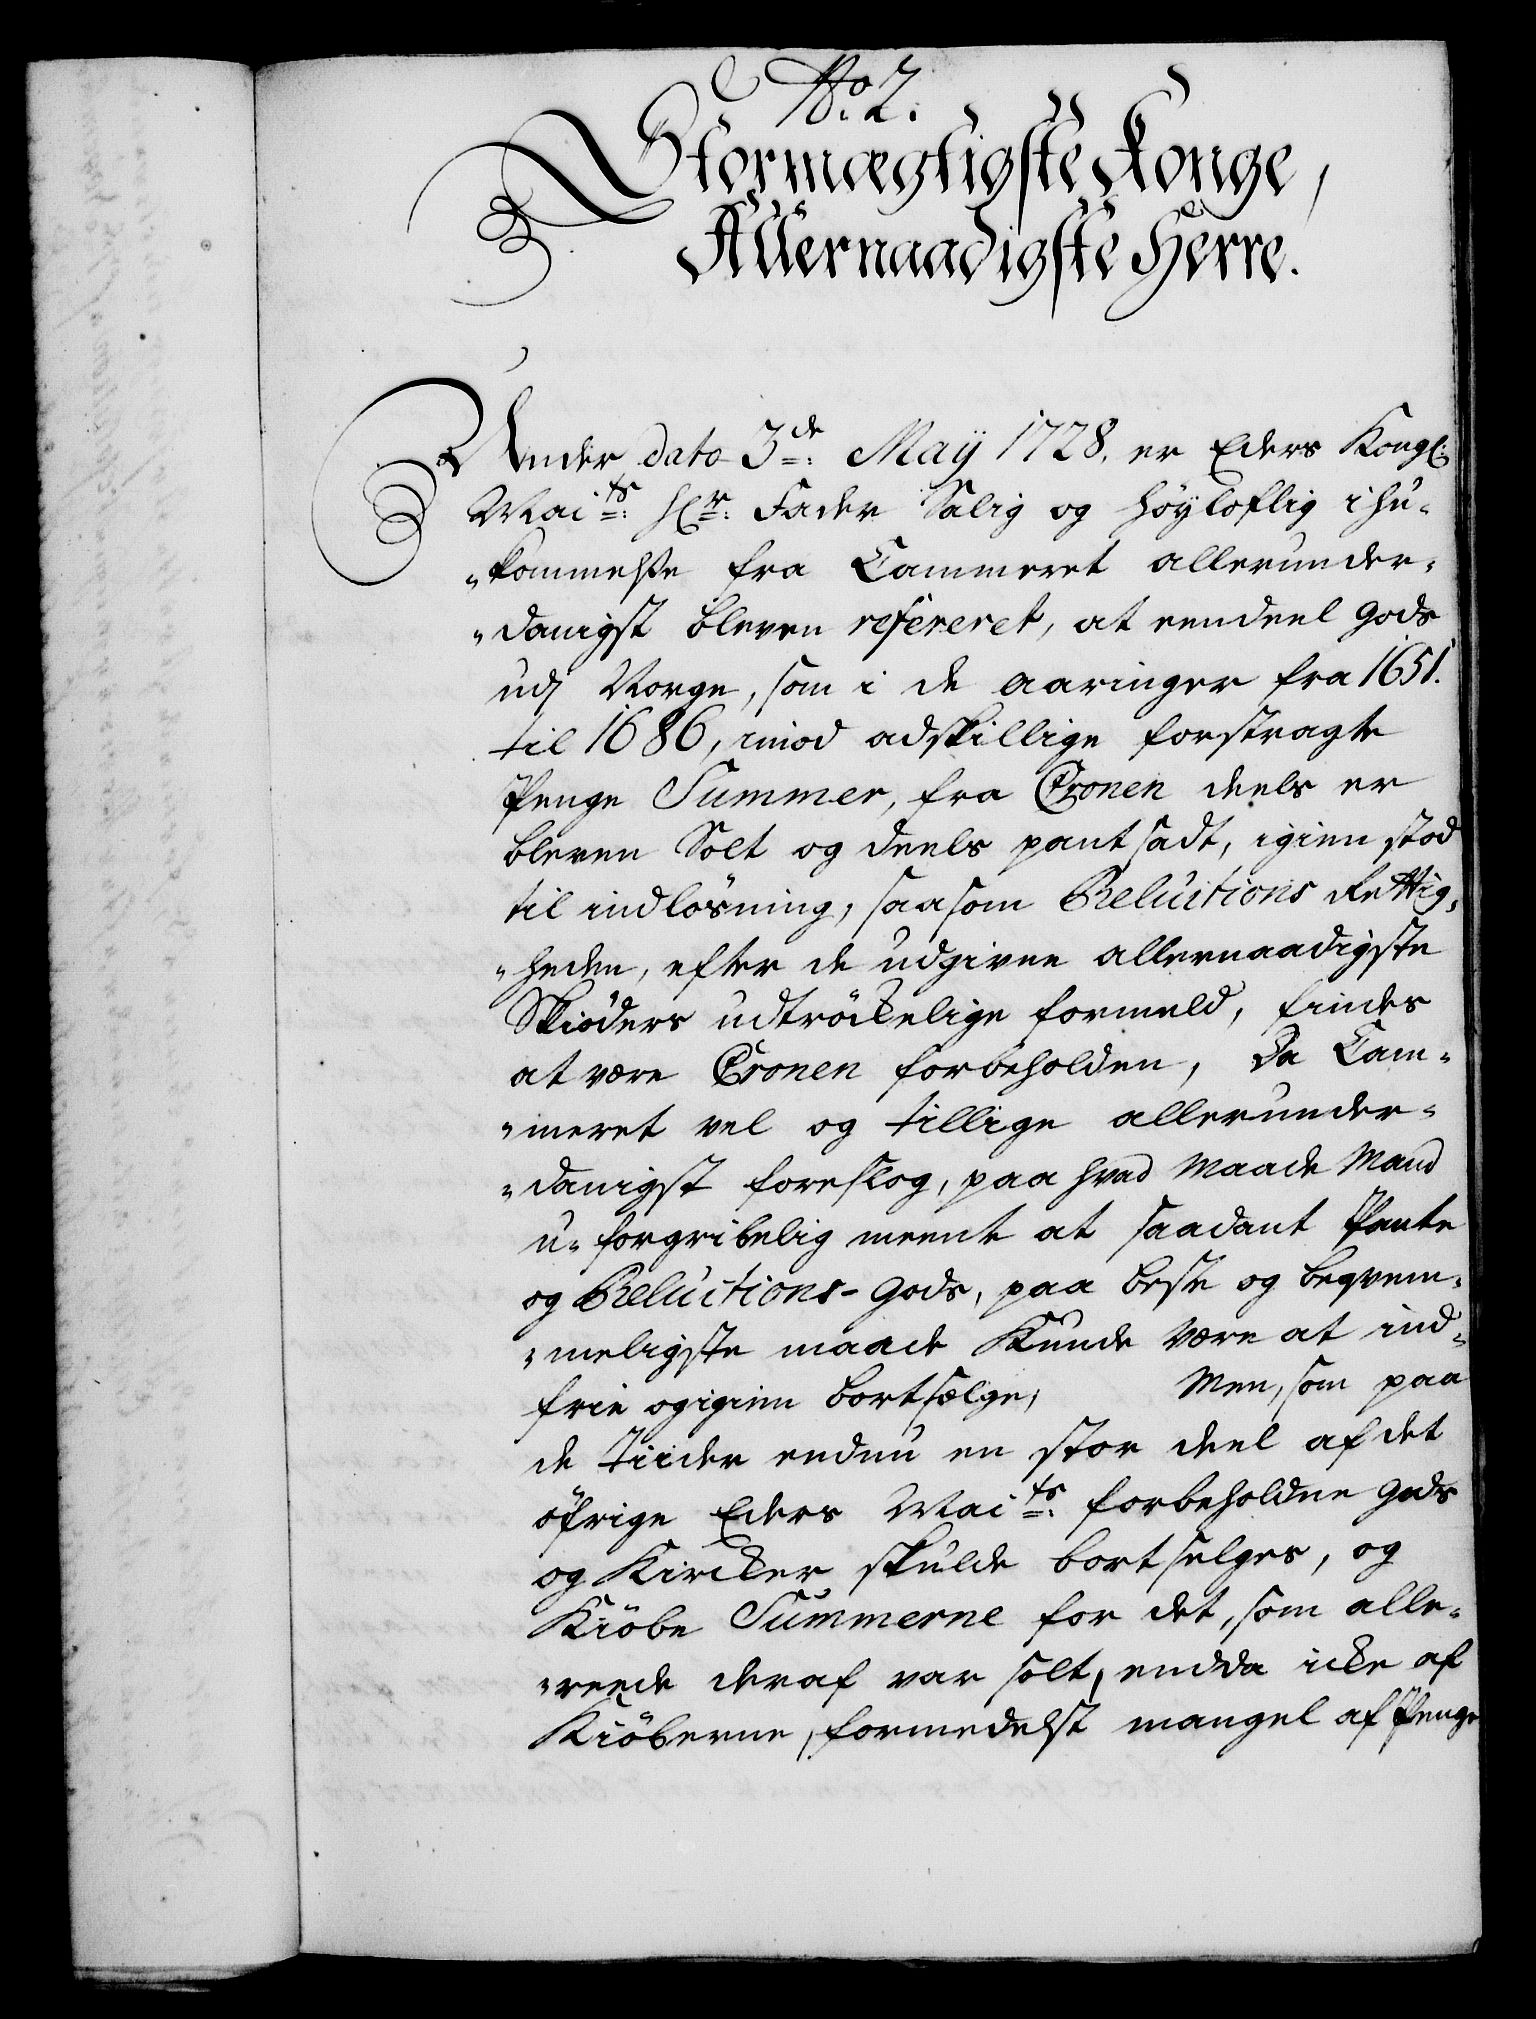 No. 2.
Stormægtigste Konge,
Allernaadigste Herre.
Under dato 3de: Maÿ 1728. er Eders Kongl:
Maits: Hr: Fader Salig og höÿloflig ihu-
"kommelse fra Cammeret allerunder-
"danigst bleven refereret, at eendeel Gods
udj Norge, som i de aaringer fra 1651.
til 1686, imod adskillige forstragte
Penge Summer, fra Cronen deels er
bleven Solt og deels pantsadt, igien stod
til indlösning, saasom Reluitions Rettig-
"heden, efter de udgivne allernaadigste
Skiöders udtröckelige formeld, findes
at være Cronen forbeholden, Da Cam-
"meret vel og tillige allerunder-
"danigst foreslog, paa hvad Maade Mand
u-forgribelig meente at saadant Pante
og Reluitions-Gods, paa beste og beqvem-
"meligste maade Kunde Være at ind-
frie og igien bortsælge, Men, som paa
de Tiider endnu en stor deel af det
öfrige Eders Maits: forbeholdne Gods
og Kircker skulde bortselges, og
Kiöbe Summerne for det, som alle-
"reede deraf var solt, endda icke af
Kiöberne, formedelst mangel af Penge